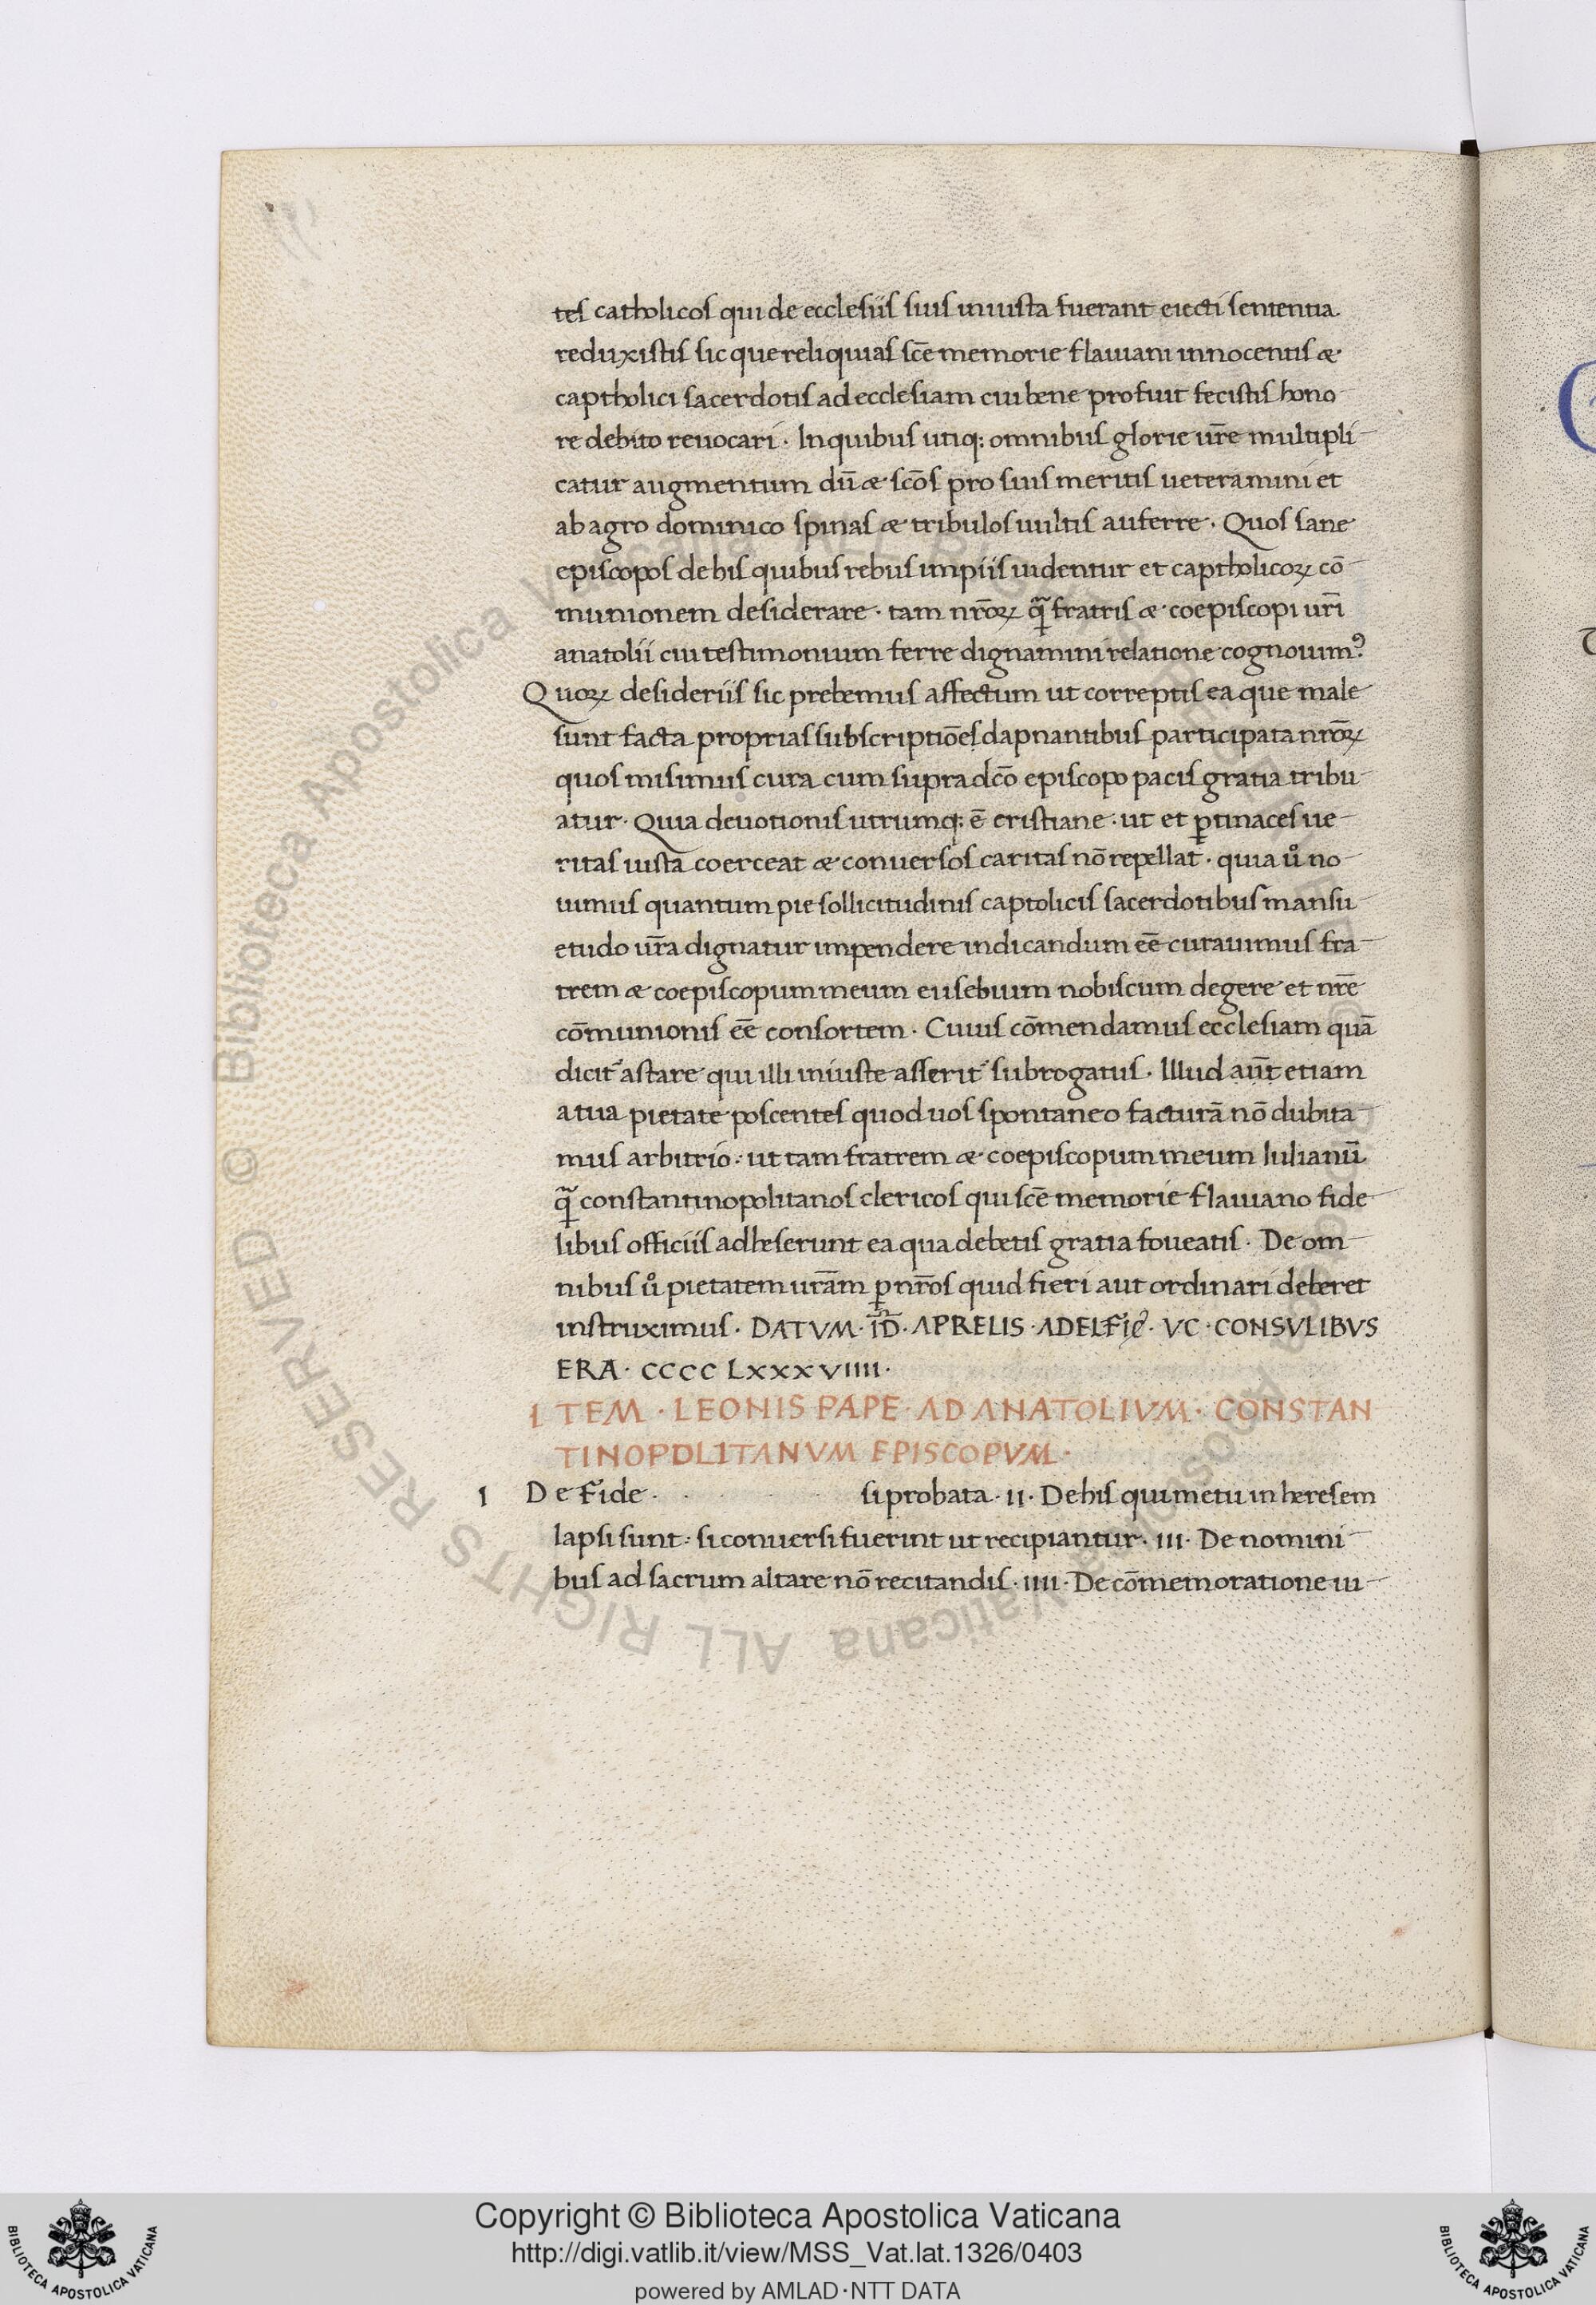 tes catholicos qui de ecclesiis suis iniusta fuerant eiecti sententia
reduxistis sic que reliquias sc̄e memorie flauiani innocentis æ
captholici sacerdotis ad ecclesiam cui bene profuit fecistis hono
re debito reuocari · In quibus utiq; omnibus glorie ur̄e multipli
catur augmentum dū æ sc̄os pro suis meritis ueteramini et
ab agro dominico spinas æ tribulos uultis auferre · Quos sane
episcopos de his quibus rebus impiis uidentur et captholicoꝝ cō
munionem desiderare · tam nr̄oꝝ q̄ fratris æ coepiscopi ur̄i
anatolii cui testimonium ferre dignamini relatione cognouimꝰ
Quoꝝ desideriis sic prebemus affectum ut correptis ea que male
sunt facta proprias subscriptiōes dapnantibus participata nr̄oꝝ
quos misimus cura cum supra dc̄o episcopo pacis gratia tribu
atur · Quia deuotionis utrumq; ē cristiane · ut et ꝑtinaces ue
ritas iusta coerceat æ conuersos caritas nō repellat · quia uͦ no
uimus quantum pie sollicitudinis captolicis sacerdotibus mansu
etudo ur̄a dignatur impendere indicandum eē curauimus fra
trem æ coepiscopum meum eusebium nobiscum degere et nr̄e
cōmunionis eē consortem · Cuius cōmendamus ecclesiam quā
dicit᷑ astare qui illi iniuste asserit᷑ subrogatus · Illud aūt etiam
a tua pietate poscentes quod uos spontaneo facturā nō dubita
mus arbitrio : ut tam fratrem æ coepiscopum meum Iulianū
q̄ constantinopolitanos clericos qui sc̄e memorie flauiano fide
libus officiis adheserunt ea qua debetis gratia foueatis · De om
nibus uͦ pietatem urām ꝑ nr̄os quid fieri aut ordinari deberet
instruximus · DATVM · ID̄ · APRELIS · ADELFIO · VC · CONSVLIBVS
ERA · CCCC LXXXVIIII ·
ITEM · LEONIS PAPE · AD ANATOLIVM · CONSTAN
TINOPOLITANVM EPISCOPVM ·
I De Fide · si probata · II · De his qui metu in heresem
lapsi sunt : si conuersi fuerint ut recipiantur · III · De nomini
bus ad sacrum altare nō recitandis · IIII · De cōmemoratione iu
Copyright © Biblioteca Apostolica Vaticana
http://digi.vatlib.it/view/MSS_Vat.lat.1326/0403
powered by AMLAD·NTT DATA
BIBLIOTECA APOSTOLICA VATICANA
BIBLIOTECA APOSTOLICA VATICANA
© Biblioteca Apostolica Vaticana ALL RIGHTS RESERVED